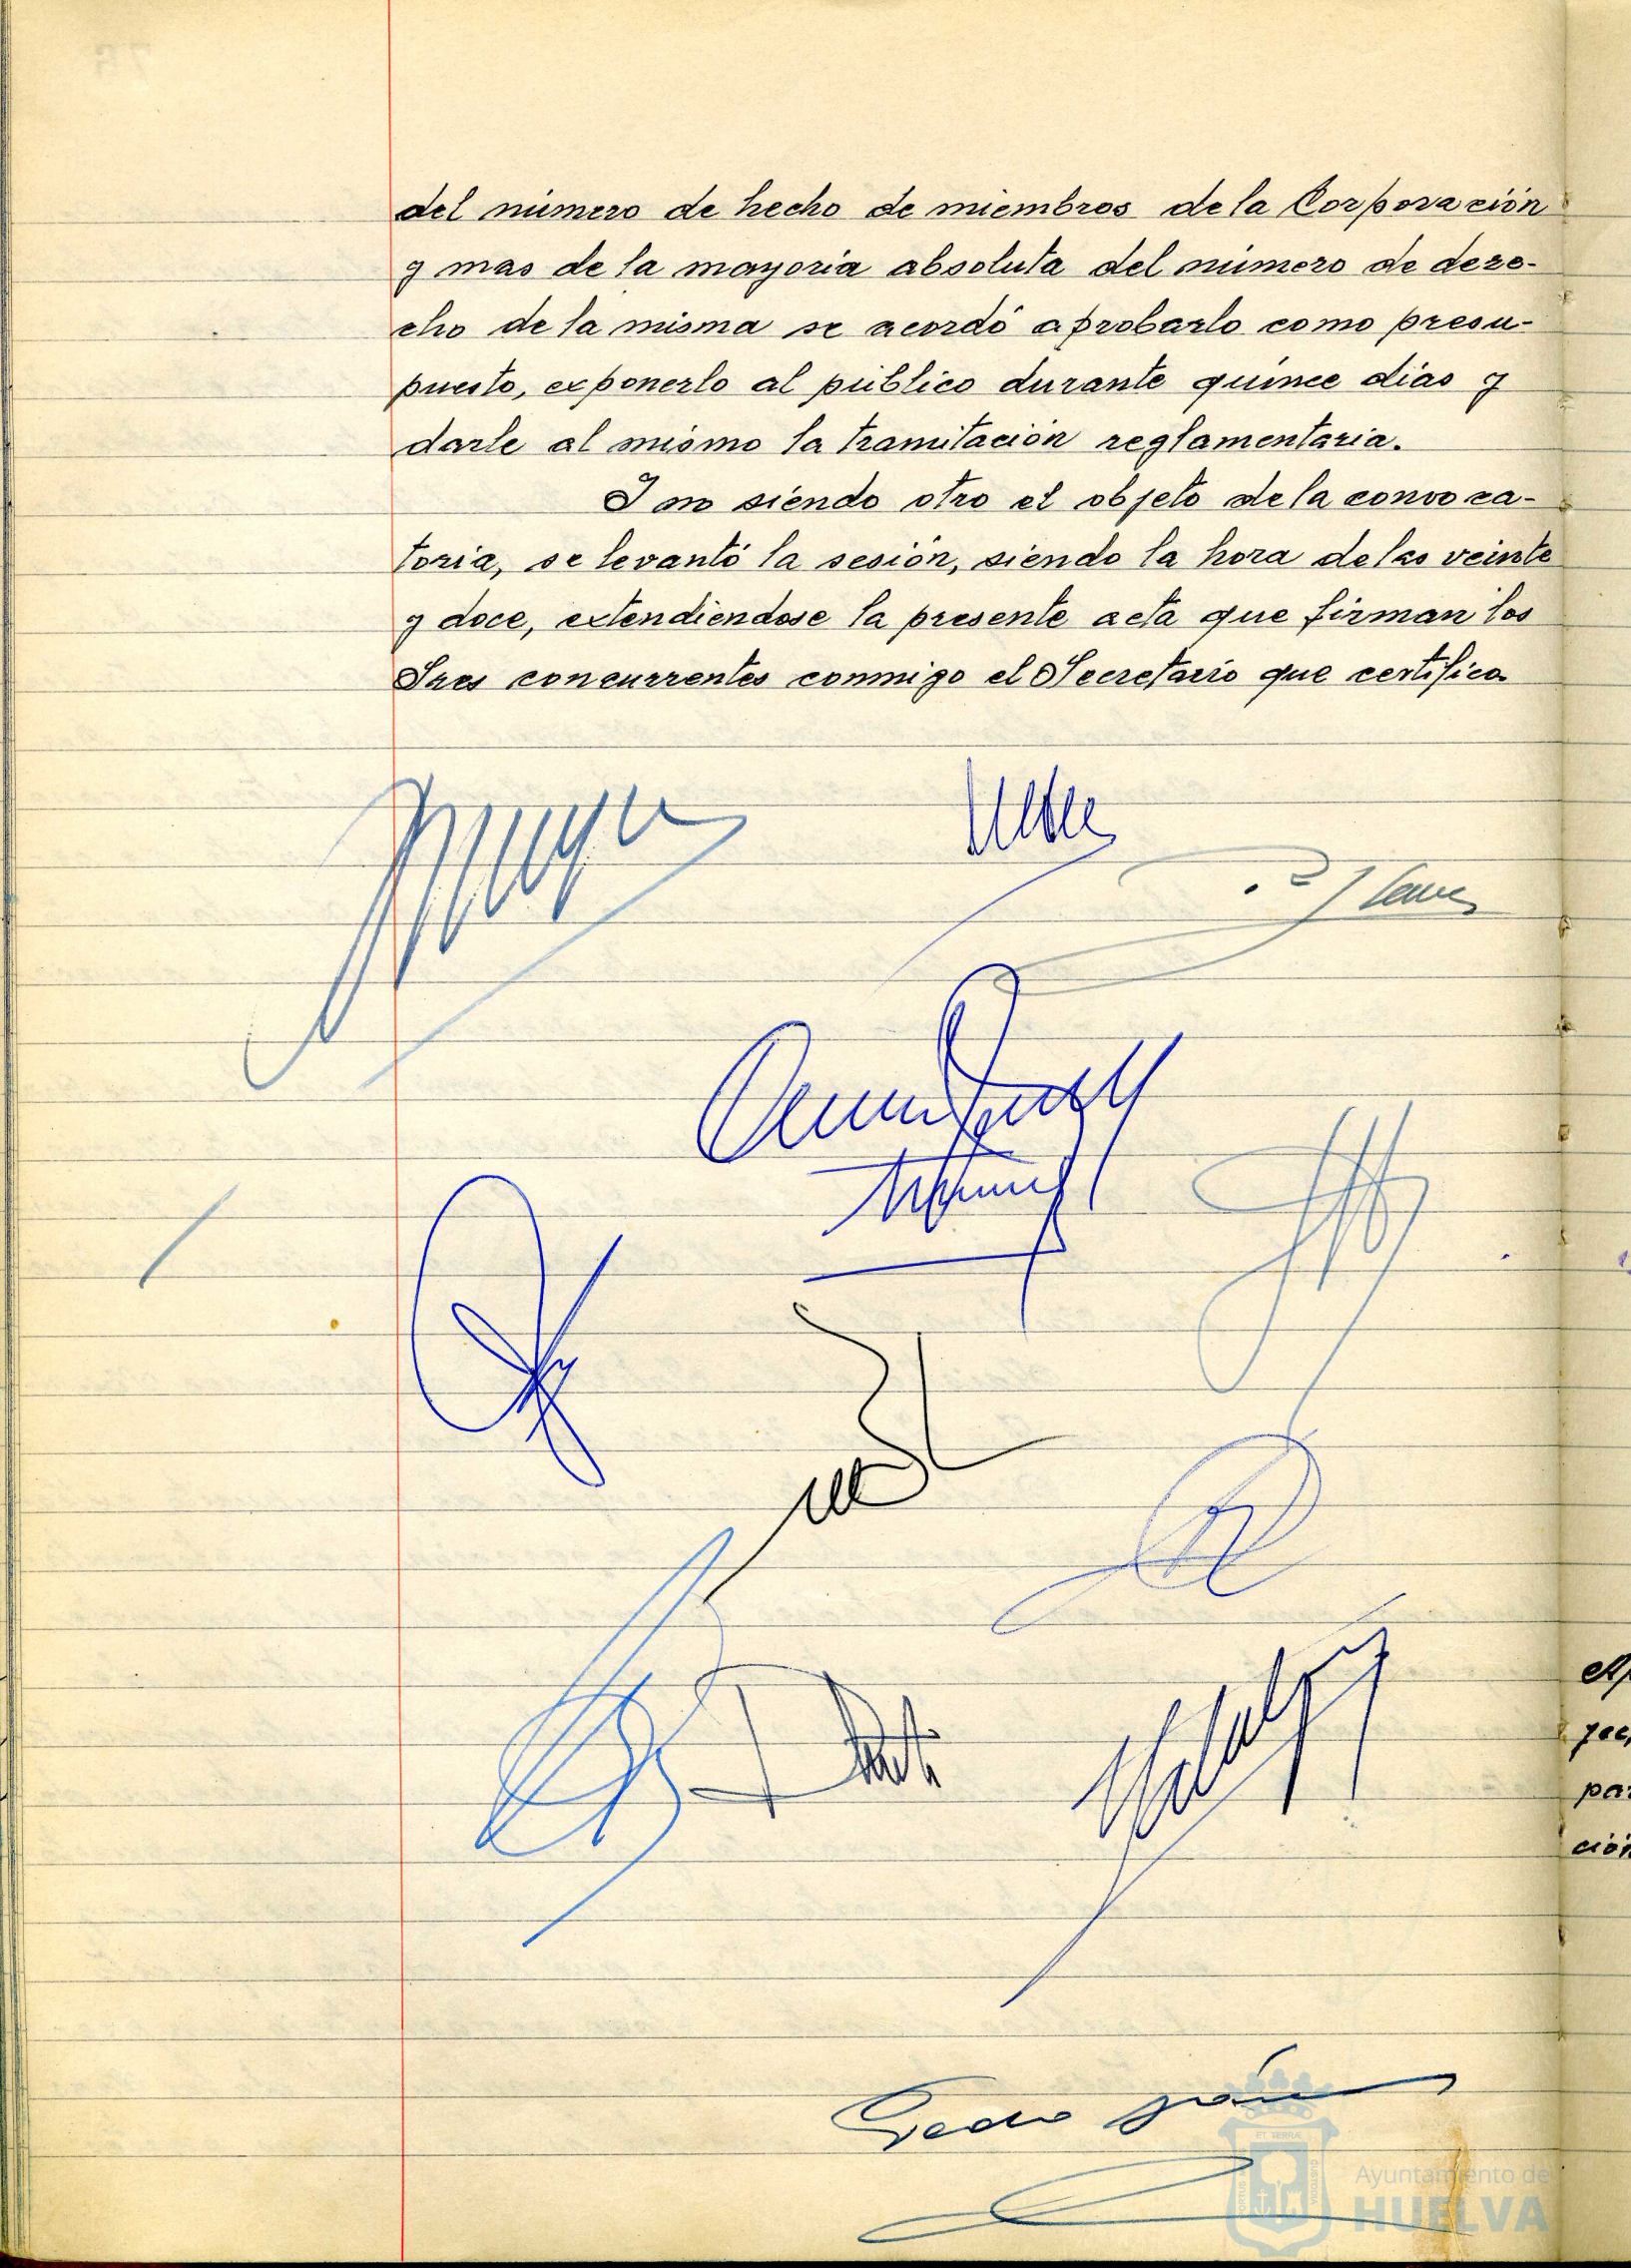 del número de hecho de miembros de la Corporación
y mas de la mayoria absoluta del número de dere-
cho de la misma se acordó aprobarlo como presu-
puesto, exponerlo al público durante quince dias y
darle al mismo la tramitación reglamentaria.
Y no siendo otro el objeto de la convoca-
toria, se levantó la sesión, siendo la hora de las veinte
y doce, extendiendose la presente acta que firman los
Sres concurrentes conmigo el Secretario que certifico.
Pedro
Ayuntamiento de
HUELVA